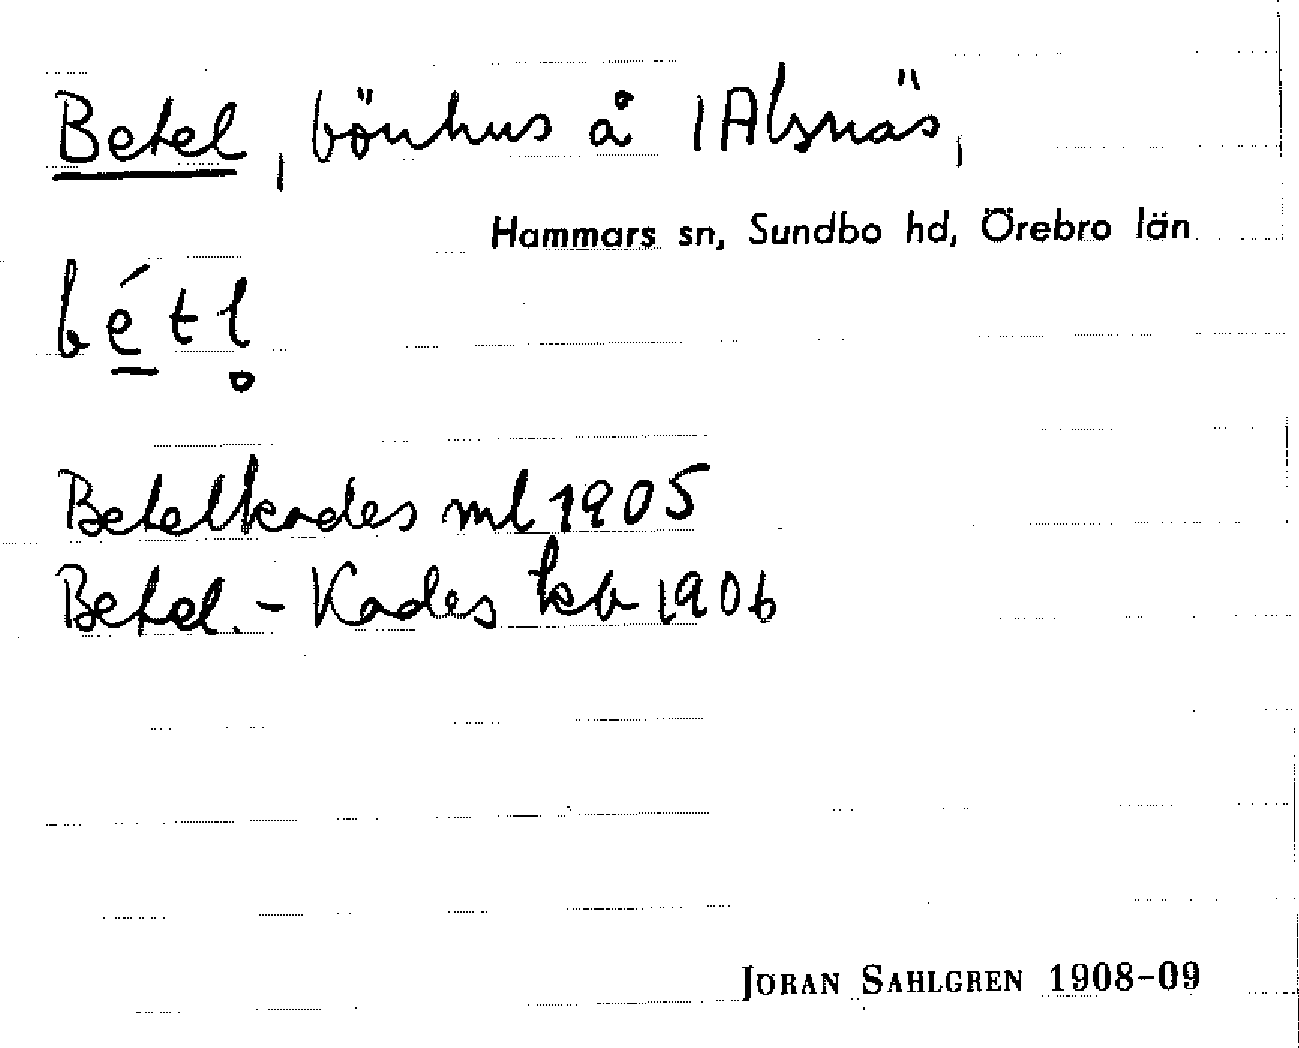 Betel, bönhus å 1 Alsnäs,
Hammars sn, Sundbo hd, Örebro län
bé̱tl̥
Betelkades ml 1905
Betel.-Kades kb 1906
JÖRAN SAHLGREN 1908-09